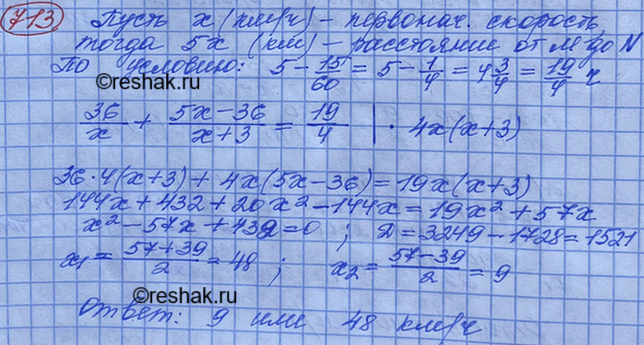 713
Пусть x (км/ч) – первонач. скорость,
тогда 5x (км) – расстояние от M до N
По условию: 5 - 15/60 = 5 - 1/4 = 4 3/4 = 19/4 ч
©reshak.ru
36/x + (5x-36)/(x+3) = 19/4 | · 4x(x+3)
36·4(x+3) + 4x(5x-36) = 19x(x+3)
144x + 432 + 20x² - 144x = 19x² + 57x
x² - 57x + 432 = 0 ; D = 3249 - 1728 = 1521
x₁ = (57+39)/2 = 48 ; x₂ = (57-39)/2 = 9
©reshak.ru
Ответ: 9 или 48 км/ч